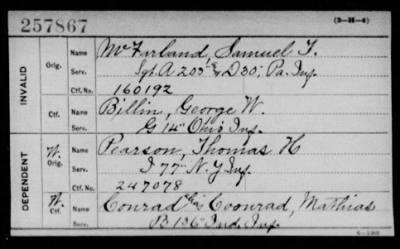 257867
(3-H-4)
INVALID
Orig.
Name McFarland, Samuel T.
Serv. Sgt A 203 & D 30, Pa. Inf.
Ctf. No. 160192
Ctf.
Name Billin, George W.
Serv. G 14" Ohio Inf.
DEPENDENT
W. Orig.
Name Pearson, Thomas H
Serv. I 77" N.Y Inf.
Ctf. No. 247078
W. Ctf.
Name Conrad Coonrad, Mathias
Serv. B 136" Ind. Inf.